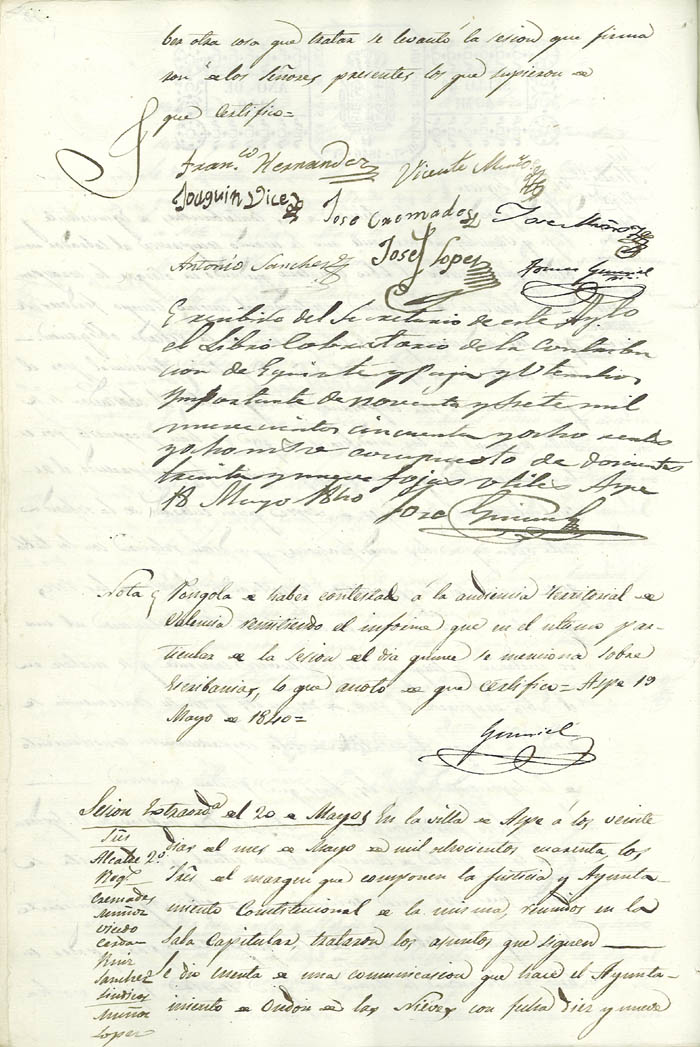 ber otra cosa que tratar se levantó la sesion que firma
ron de los Señores presentes los que supieron de
que certifico=
Fran.co Hernandez
Vicente Muñoz
Joaquin Vicedo
Jose Cremades
Jose Muñoz
Antonio Sanchez
Jose Lopez
Exsibido del Secretario de este Ay.to
el Libro Cobratorio de la Contribu
cion de y Utencilios
Ymportante de noventa y siete mil
nuevecientos cincuenta y ocho reales
y ocho mrs compuesto de docientas
treinta y nueve fojas utiles Aspe
18 Mayo 1840
Jose
Nota Pongola de haber contestado á la audiencia territorial de
Valencia remitiendo el informe que en el ultimo par-
ticular de la sesion del dia quince se menciona sobre
Escribanias, lo que anoto de que certifico= Aspe 19
Mayo de 1840=
Sesion Extraord.a del 20 de Mayo En la villa de Aspe á los veinte
Sres
dias del mes de Mayo de mil ochocientos cuarenta, los
Alcalde 2.o
Sres del margen que componen la Justicia y Ayunta-
Reg.s
Cremades
miento Constitucional de la misma, reunidos en la
Muñoz
Vicedo
Sala Capitular, trataron los asuntos que siguen
Cerdan
Ruiz
Se dio cuenta de una comunicasion que hace el Ayunta-
Sanchez
Sindicos
miento de Ondon de las Nieves con fecha diez y nueve
Muñoz
Lopez